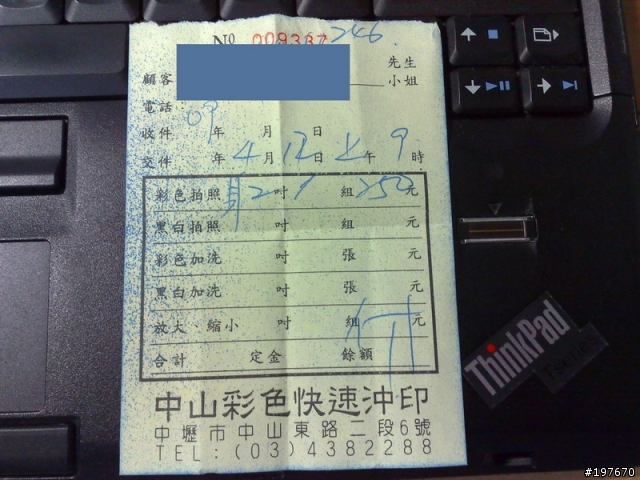 No 009337 246
先生
顧客 小姐
電話： 09
收件 年 月 日
交件 年 4 月 12 日 上 午 9 時
彩色拍照 身2 吋 1 組 250 元
黑白拍照 吋 組 元
彩色加洗 吋 張 元
黑白加洗 吋 張 元
放大、縮小 吋 組 元
合計 定金 餘額 付
中山彩色快速沖印
中壢市中山東路二段6號
TEL:(03)4382288
ThinkPad
#197670